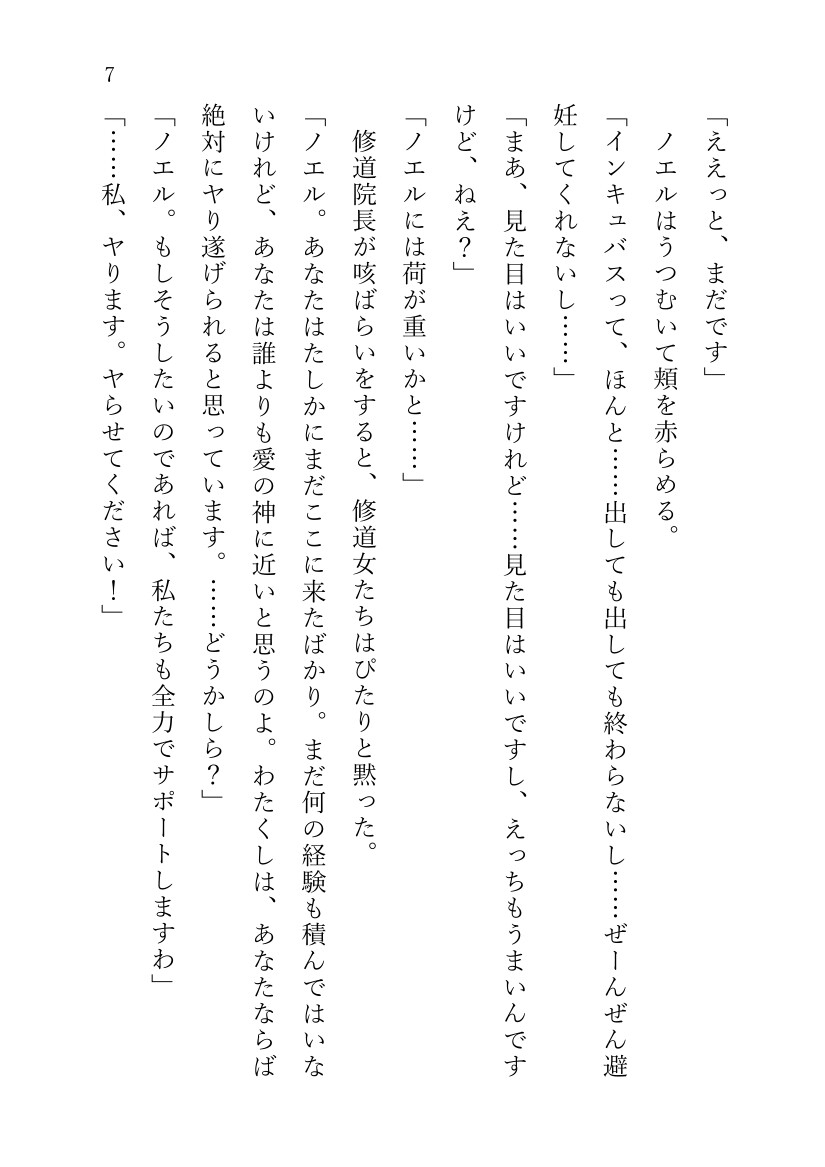 7
「ええっと、まだです」
　ノエルはうつむいて頬を赤らめる。
「インキュバスって、ほんと……出しても出しても終わらないし……ぜーんぜん避
妊してくれないし……」
「まあ、見た目はいいですけれど……見た目はいいですし、えっちもうまいんです
けど、ねえ？」
「ノエルには荷が重いかと……」
　修道院長が咳ばらいをすると、修道女たちはぴたりと黙った。
「ノエル。あなたはたしかにまだここに来たばかり。まだ何の経験も積んではいな
いけれど、あなたは誰よりも愛の神に近いと思うのよ。わたくしは、あなたならば
絶対にヤり遂げられると思っています。……どうかしら？」
「ノエル。もしそうしたいのであれば、私たちも全力でサポートしますわ」
「……私、ヤります。ヤらせてください！」